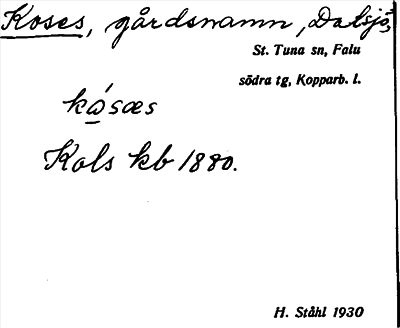 Koses, gårdsnamn, Dalsjö,
St. Tuna sn, Falu
södra tg, Kopparb. l.
kósæs
Kols kb 1880.
H. Ståhl 1930